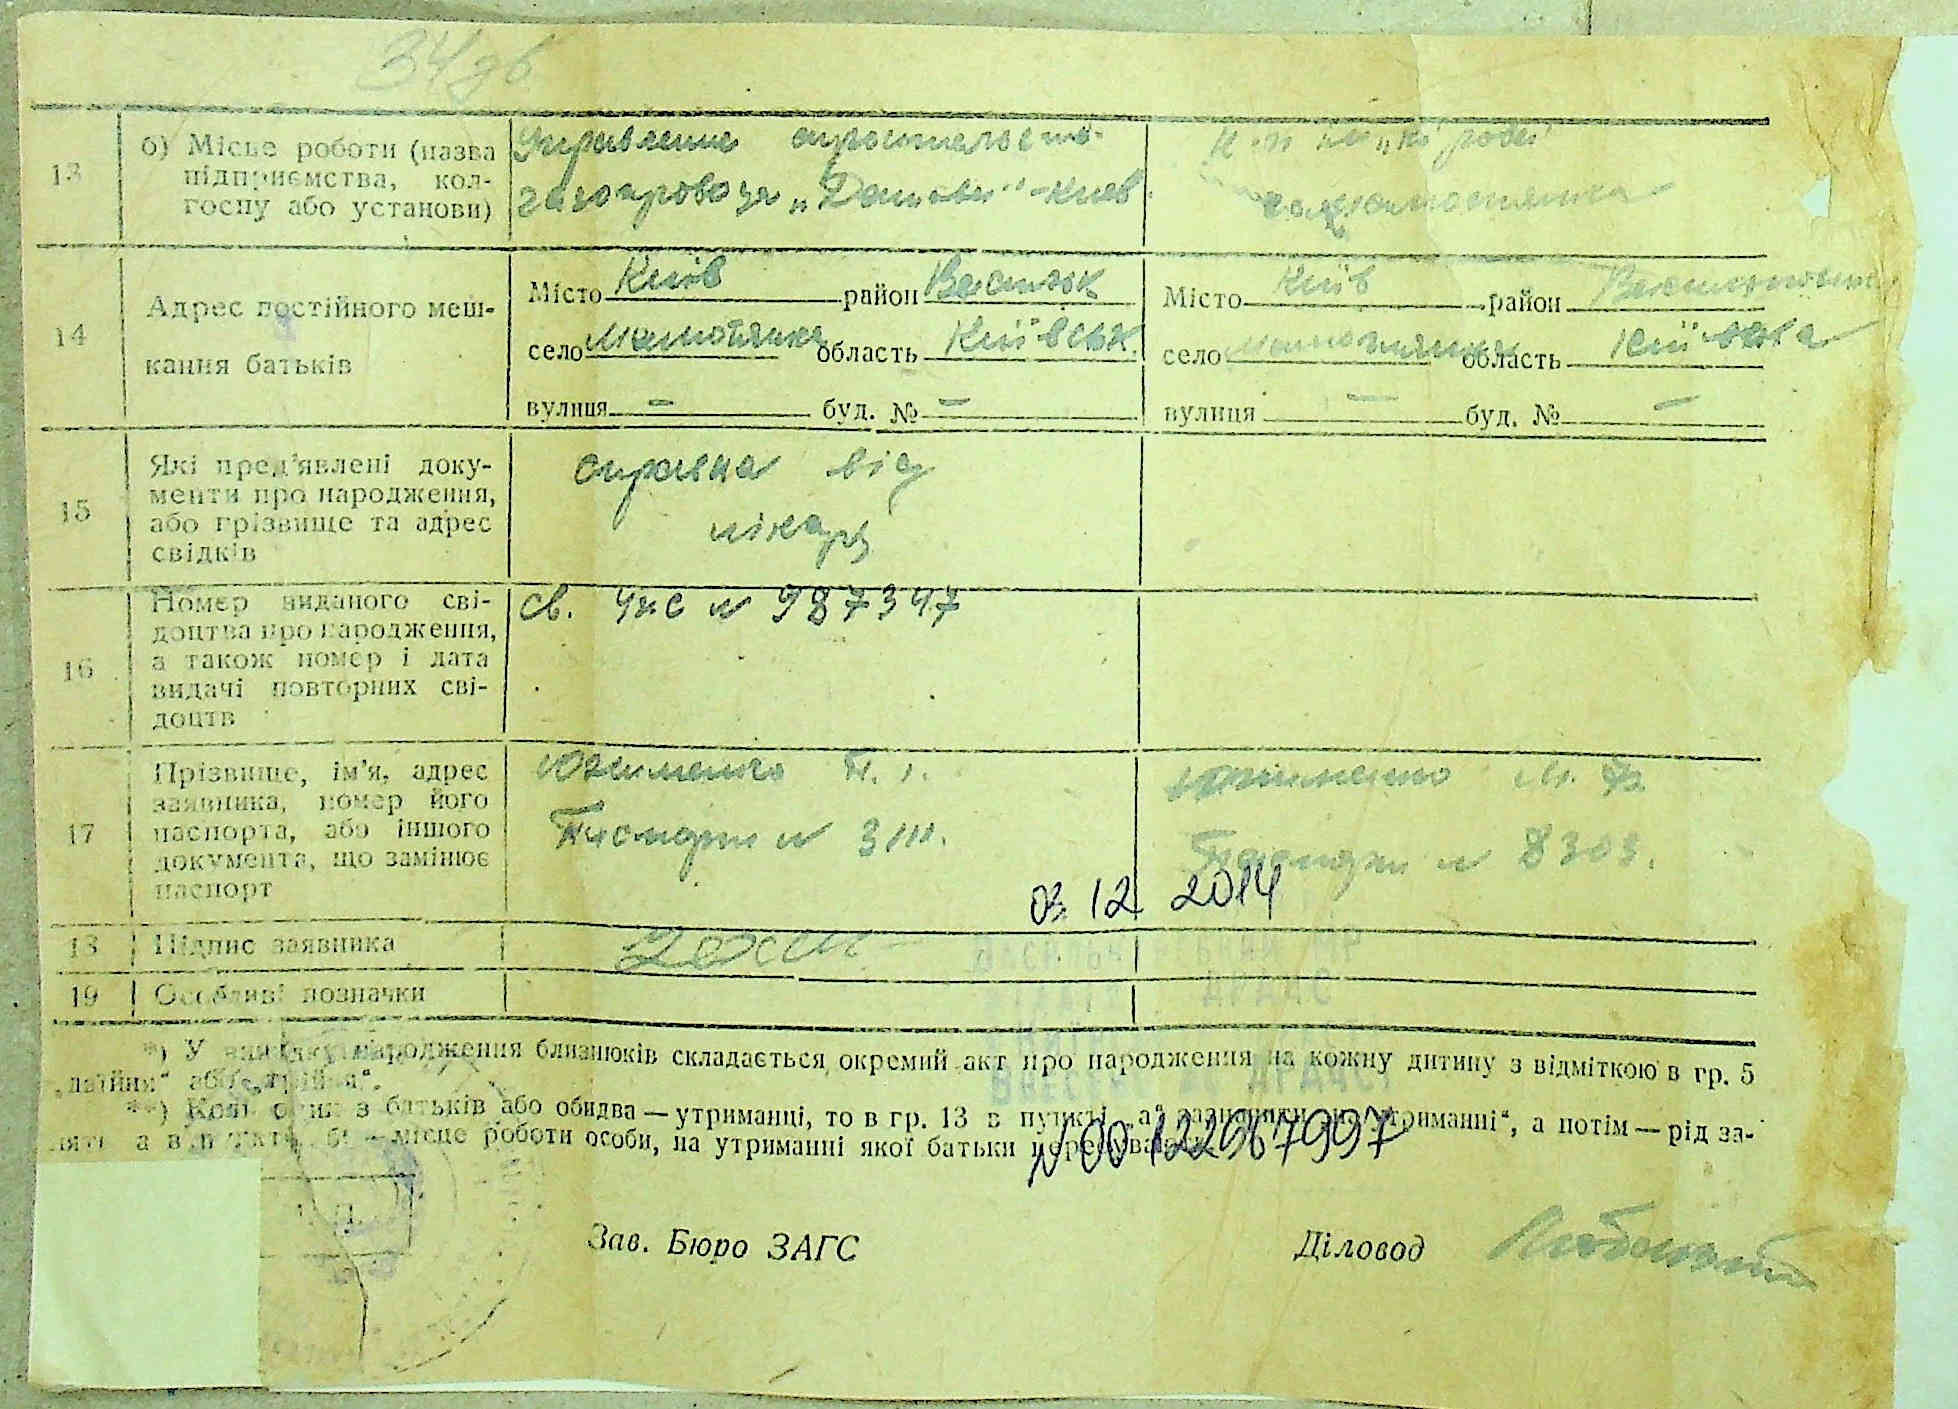 13
б) Місце роботи (назва
підприємства, кол-
госпу або установи)
Управление строительства
газопровода „Дашава“-Киев
14
Адрес постійного меш-
кання батьків
Місто Київ район Васильк
село Мамотянка область Київськ.
вулиця — буд. № —
Місто Київ район
село область Київська
вулиця — буд. № —
15
Які пред'явлені доку-
менти про народження,
або прізвище та адрес
свідків
справка від
лікаря
16
Номер виданого сві-
доцтва про народження,
а також номер і дата
видачі повторних сві-
доцтв
св. № 987347
17
Прізвище, ім'я, адрес
заявника, номер його
паспорта, або іншого
документа, що замінює
паспорт
Паспорт №
Паспорт № 8303.
03 12 2014
18
Підпис заявника
19
Особливі позначки
*) У випадку народження близнюків складається окремий акт про народження на кожну дитину з відміткою в гр. 5
„двійня“ або „трійня“.
**) Коли один з батьків або обидва — утриманці, то в гр. 13 в пункті „а“ зазначити „на утриманні“, а потім — рід за-
а в пункті „б“ — місце роботи особи, на утриманні якої батьки
№ 00122967997
Зав. Бюро ЗАГС
Діловод